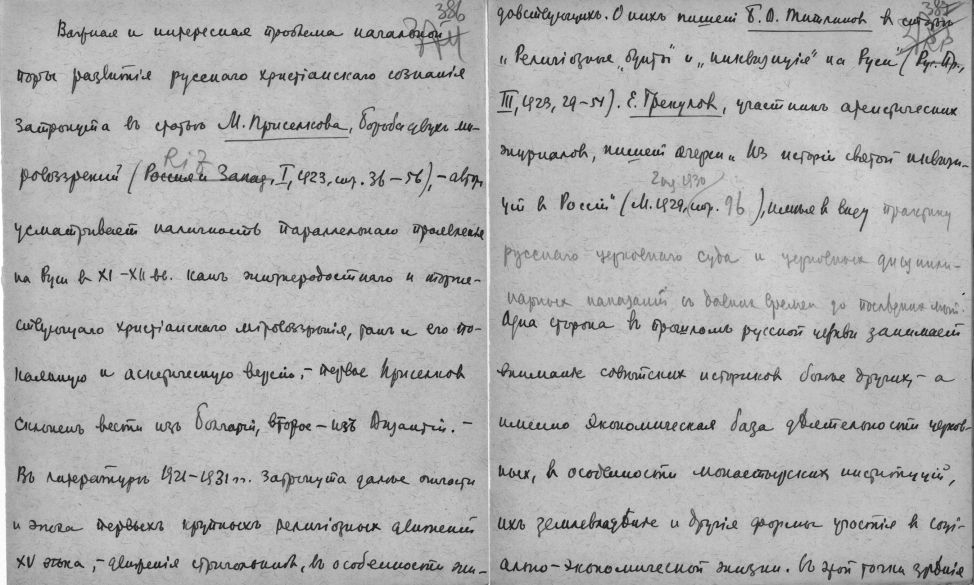 386
Важная и интересная проблема начальной
поры развитія русскаго христіанскаго сознанія
затронута въ статье М. Приселкова, борьба двухъ ми-
ровоззрений (Россия и Запад, I, 1923, стр. 36-56), - автор
усматривает наличность параллельнаго проявленія
на Руси в XI-XII вв. какъ жизнерадостнаго и торже-
ствующаго христіанскаго міровоззрѣнія, такъ и его по-
каянную и аскетическую версію, - первое Приселков
склоненъ вести изъ Болгаріи, второе - изъ Византіи. -
Въ литературѣ 1921-1931 гг. затронута далѣе отчасти
и эпоха первыхъ крупныхъ религіозныхъ движений
XV вѣка, - движенія стригольников, въ особенности жи-
довствующихъ. О нихъ пишетъ Б. В. Титлинов в статье
„Религіозные „бунты" и „инквизиція" на Руси" (Рус. Пр.,
III, 1923, 29-51). Е. Грекулов, участникъ атеистических
журналов, пишетъ очерки „Из исторіи святой инквизи-
ціи в Россіи" (М. 1929, стр. 96), имѣя в виду практику
русскаго церковнаго суда и церковных дисципли-
нарных наказаній съ давних времен до последних лет.
Одна сторона въ прошломъ русской церкви занимает
вниманіе совѣтских историков более других, - а
именно экономическая база дѣятельности церков-
ных, в особенности монастырских институцій,
ихъ землевладѣніе и другія формы участія в соці-
ально-экономической жизни. Съ этой точки зрѣнія